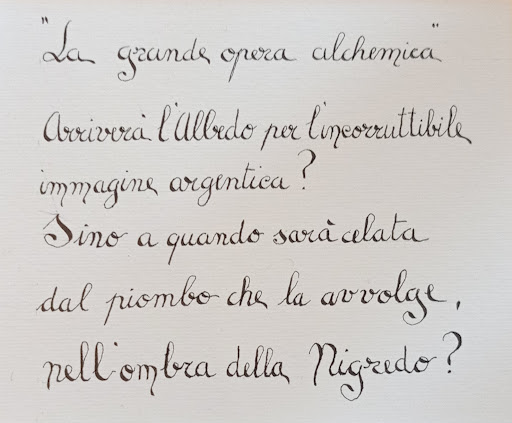 "La grande opera alchemica"
Arriverà l'Albedo per l'incorruttibile
immagine argentica?
Sino a quando sarà celata
dal piombo che la avvolge,
nell'ombra della Nigredo?